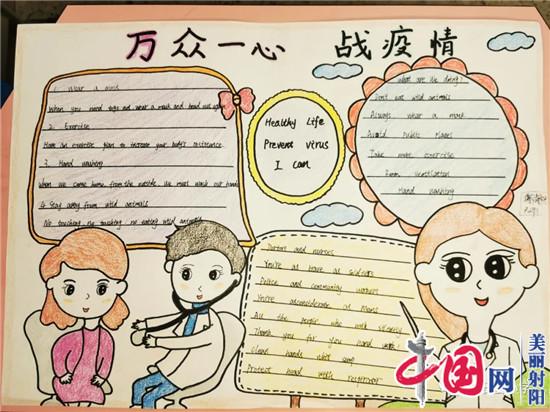 万众一心 战疫情
1. Wear a mask
When you need to go out wear a mask and
2. Exercise
Have an exercise plan to increase your body's resistance.
3. Hand washing
When we come home from the outside, we must wash our hands
4. Stay away from wild animals
No touching no touching no eating wild animals
Healthy life
Prevent virus
I can
What are the doing?
Don't eat wild animals
Always wear a mask
Avoid Public Places
Take more exercise
Room ventilation
Hand washing
Doctors and nurses
You're as brave as soldiers
Police and community workers
You're as considerate as Moms
All the people who work silently
Thank you for you hard work
Clean hands with soap
Protect hand with
中国网
美丽射阳